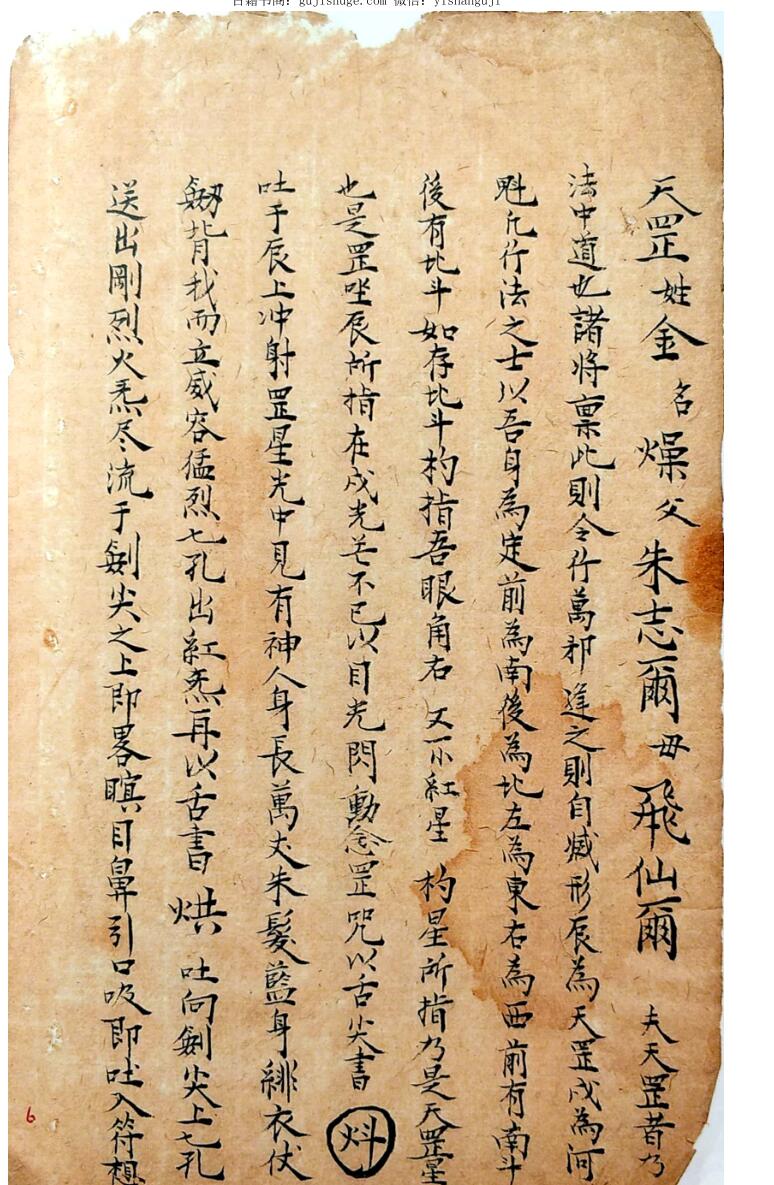 古籍书阁：gujishuge.com 微信：yishanguji
天罡姓金名燥父朱志爾毋飛仙爾 夫天罡昔乃
法中道也諸將禀此則令行萬邪逢之則自滅形辰為天罡戌為河
魁凡行法之士以吾身為定前為南後為北左為東右為西前有南斗
後有北斗如存北斗杓指吾眼角右又一小紅星杓星所指乃是天罡星
也是罡坐辰所指在戌光芒不已以目光閃動念罡咒以舌尖書㶤
吐于辰上冲射罡星光中見有神人身長萬丈朱髮藍身緋衣仗
劒背我而立威容猛烈七孔出紅炁再以舌書烘吐向劒尖上七孔
送出剛烈火炁尽流于劒尖之上即畧瞑目鼻引口吸即吐入符想
6